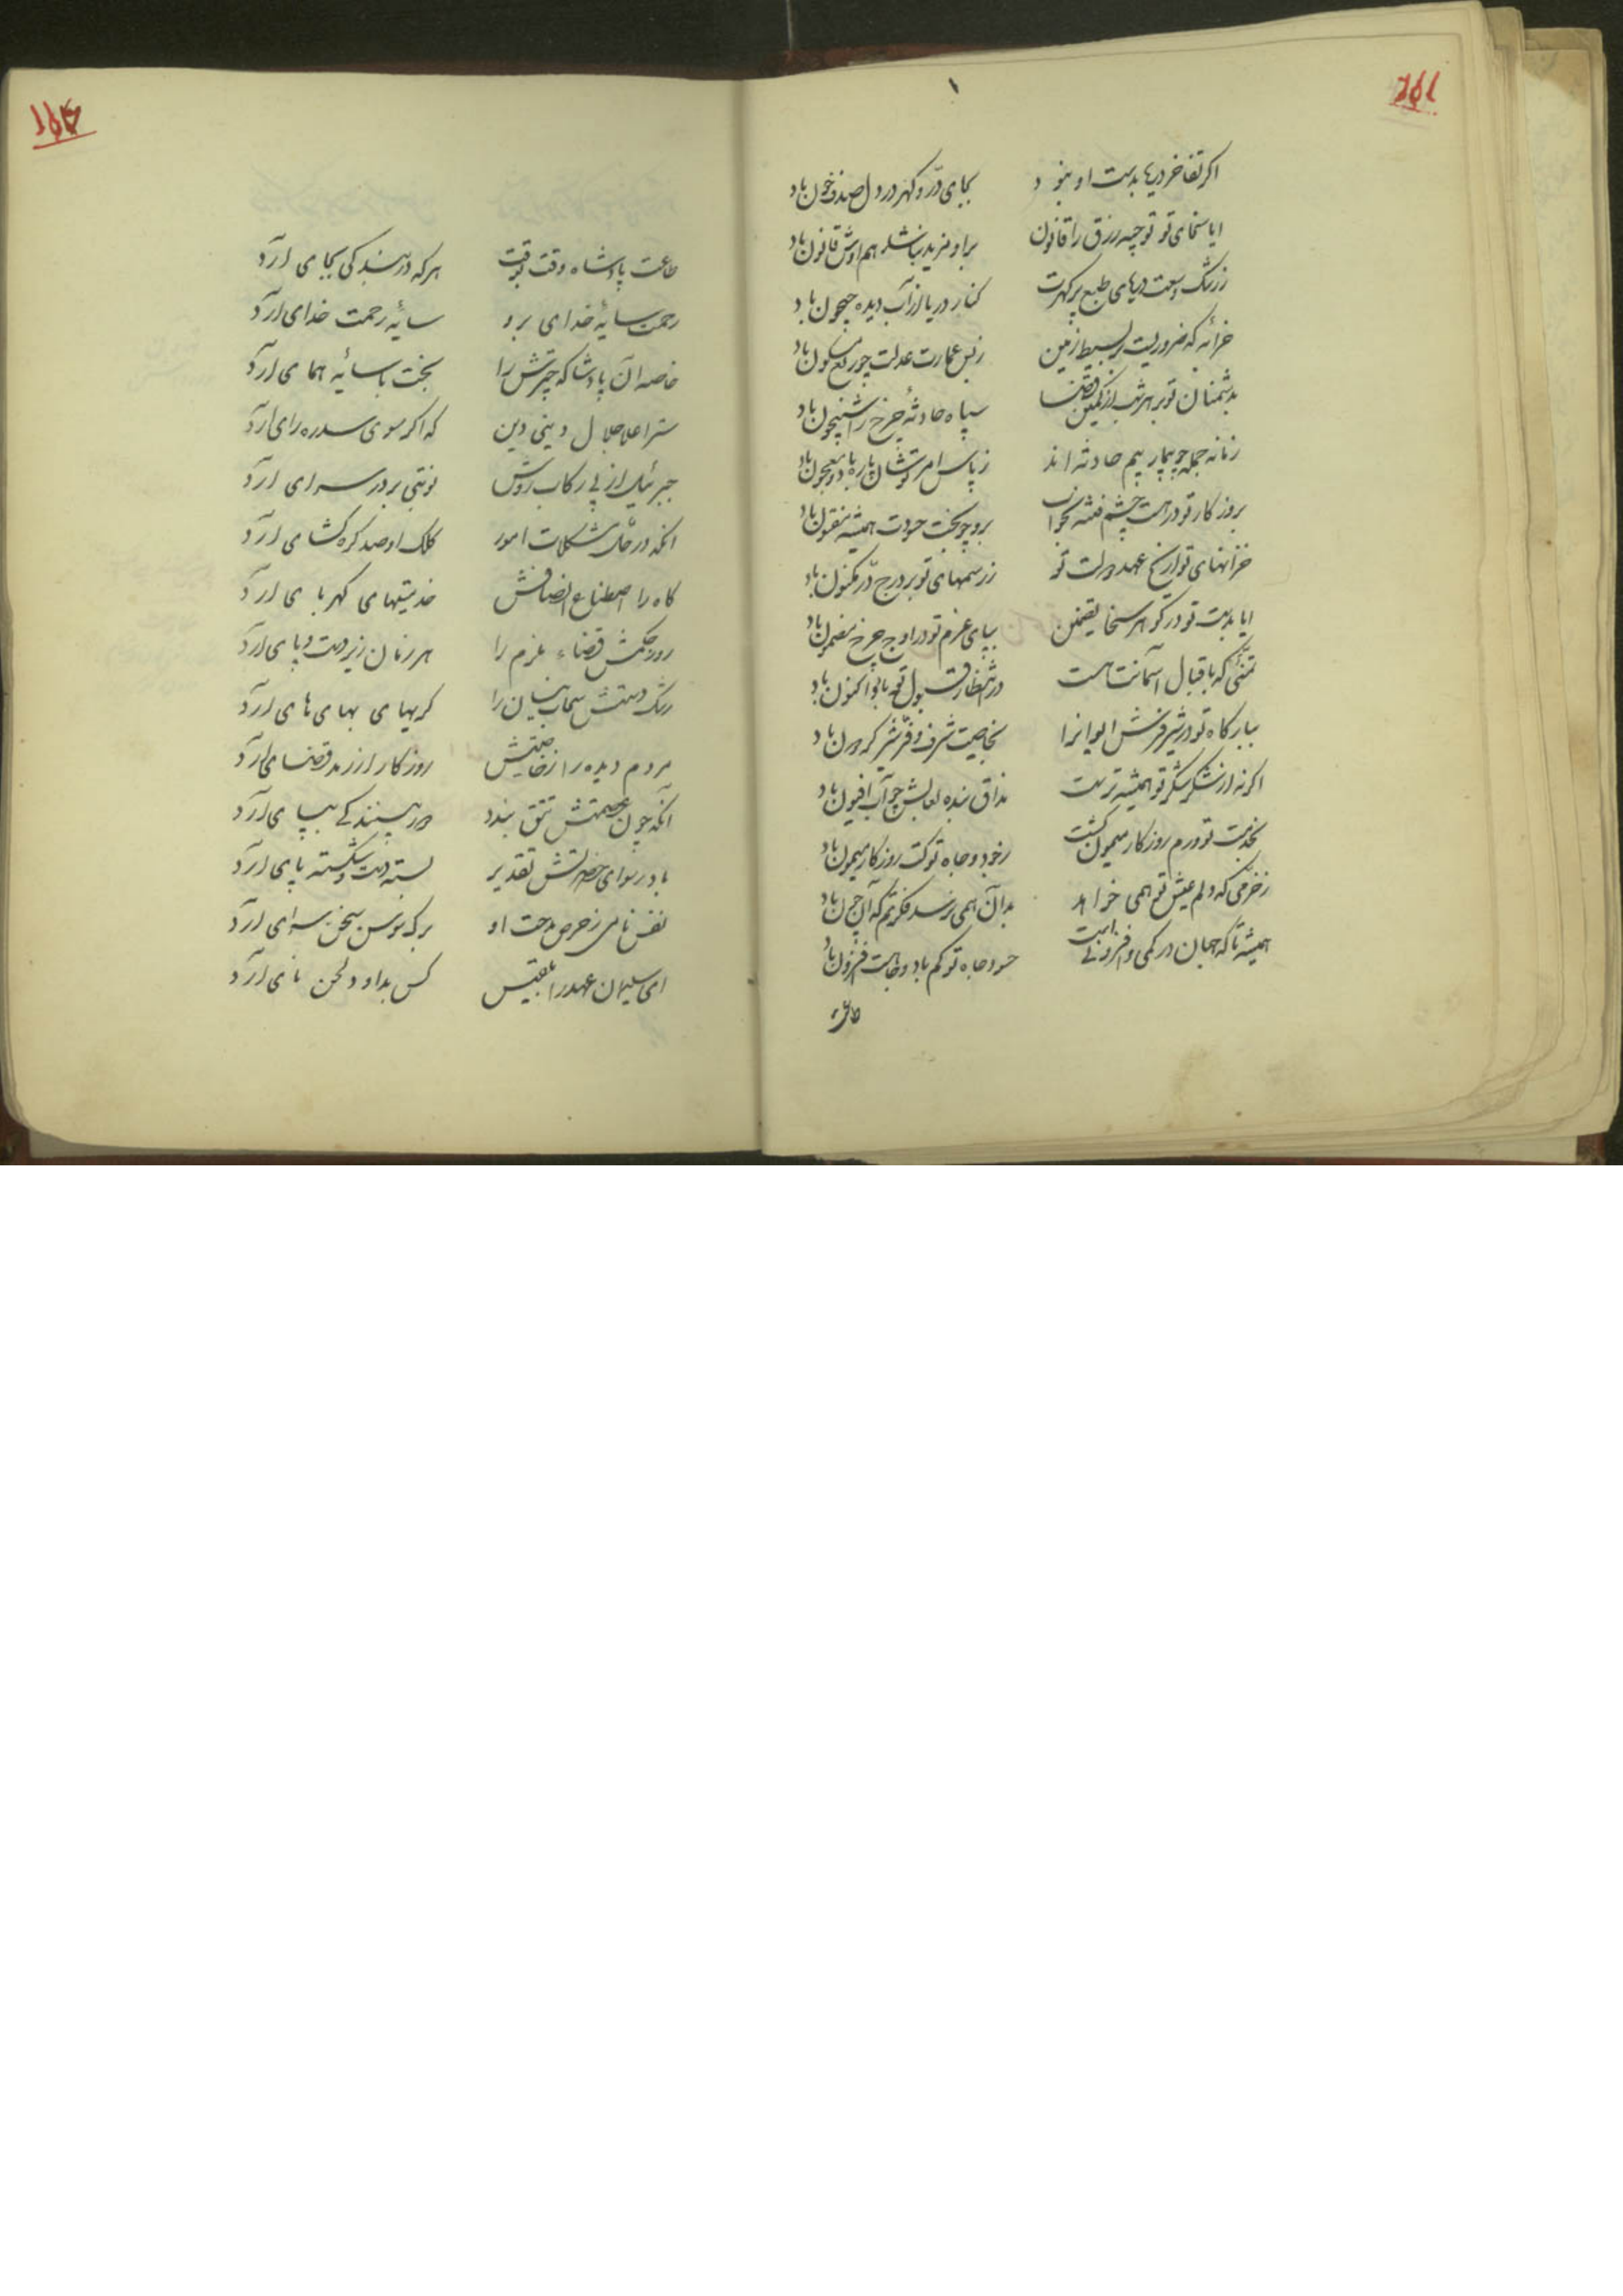 ۱
اگر تفاخر دریا بدست او نبود
بجای درّ و گهر در دل صدف خون باد
ایا سخای تو توجیه رزق را قانون
براو مزید نباشد هم اوش قانون باد
ز رشک وسعت دریای طبع پر گهرت
کنار دریا از آب دیده جیحون باد
خرابه که ضروریست بر بسیط زمین
ز بس عمارت عدلت چو ربع مسکون باد
بدشمنان تو بر هر شب از کمین قضا
سپاه حادثه چرخ را شبیخون باد
زمانه جمله چو بیمار بیم حادثه اند
ز پاس امر تو شان باره باد و معجون باد
بروزگار تو در است چشم فتنه بخواب
برو چو بخت حسودت همیشه مفتون باد
خزانهای تواریخ عهد دولت تو
ز رسمهای تو پر درج درّ مکنون باد
ایا بدست تو در گوهر سخا مضمن
بپای عزم تو در اوج چرخ مضمون باد
تمنئی که باقبال آسمانت هست
در انتظار قبول تو با نوا کنون باد
ببارگاه تو در شیر فرش ایوانرا
بخاصیت شرف و فرّ شیر گردون باد
اگر نه از شکر شکر تو همیشه ترست
مذاق بنده لعابش چو آب افیون باد
بخدمت تو درم روزگار میمون گشت
ز خود و جاه تو کت روزگار میمون باد
ز خرمی که دلم عیش تو همی خواهد
بدان همی نرسد فکرتم که آن چون باد
همیشه تا که جهان در کمی و افزونی است
حسود جاه تو کم باد و جاهت افزون باد
طاعت
طاعت پادشاه وقت بوقت
هر که در بندگی بجای آرد
رحمت سایهٔ خدای برو
سایهٔ رحمت خدای آرد
خاصه آن پادشا که چترش را
بخت با سایهٔ همای آرد
ستر اعلا جلال دینی و دین
که اگر سوی سدره رای آرد
جبرئیل از پی رکاب روش
نوبتی بر در سرای آرد
آنکه در حل مشکلات امور
کلک او صد گره گشای آرد
کاه را اصطناع انصافش
خدمتیهای کهربای آرد
روز حکمش قضاء عزم را
هر زمان زیر دست و پای آرد
رشک دستش سحاب نیسان را
گریهای بهای های آرد
مردم دیده را ز خاصیتش
روزگار از زمد قضای آرد
آنکه چون عصمتش تتق بندد
ور پسندد که بپای آرد
باد رسوای حضرتش تقدیر
بسته دست و شکسته پای آرد
نفس نامی ز حرص مدحت او
برگ سوسن سخن سرای آرد
ای سلیمان عهد را بلقیس
کس بداود لحن نای آرد